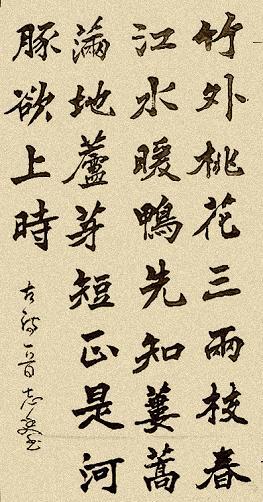 竹外桃花三兩枝春
江水暖鴨先知蔞蒿
滿地蘆芽短正是河
豚欲上時
古詩一首志